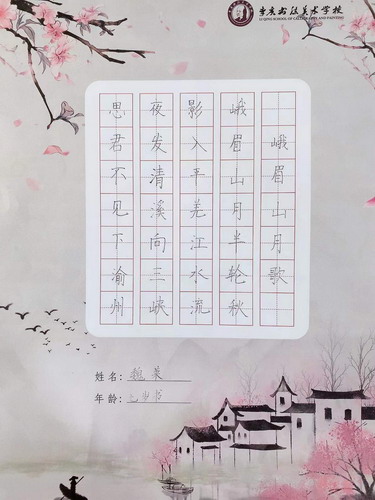 李庆书法美术学校
LI QING SCHOOL OF CALLIGRAPHY AND PAINTING
峨眉山月歌
峨眉山月半轮秋
影入平羌江水流
夜发清溪向三峡
思君不见下渝州
姓名：魏
年龄：岁书